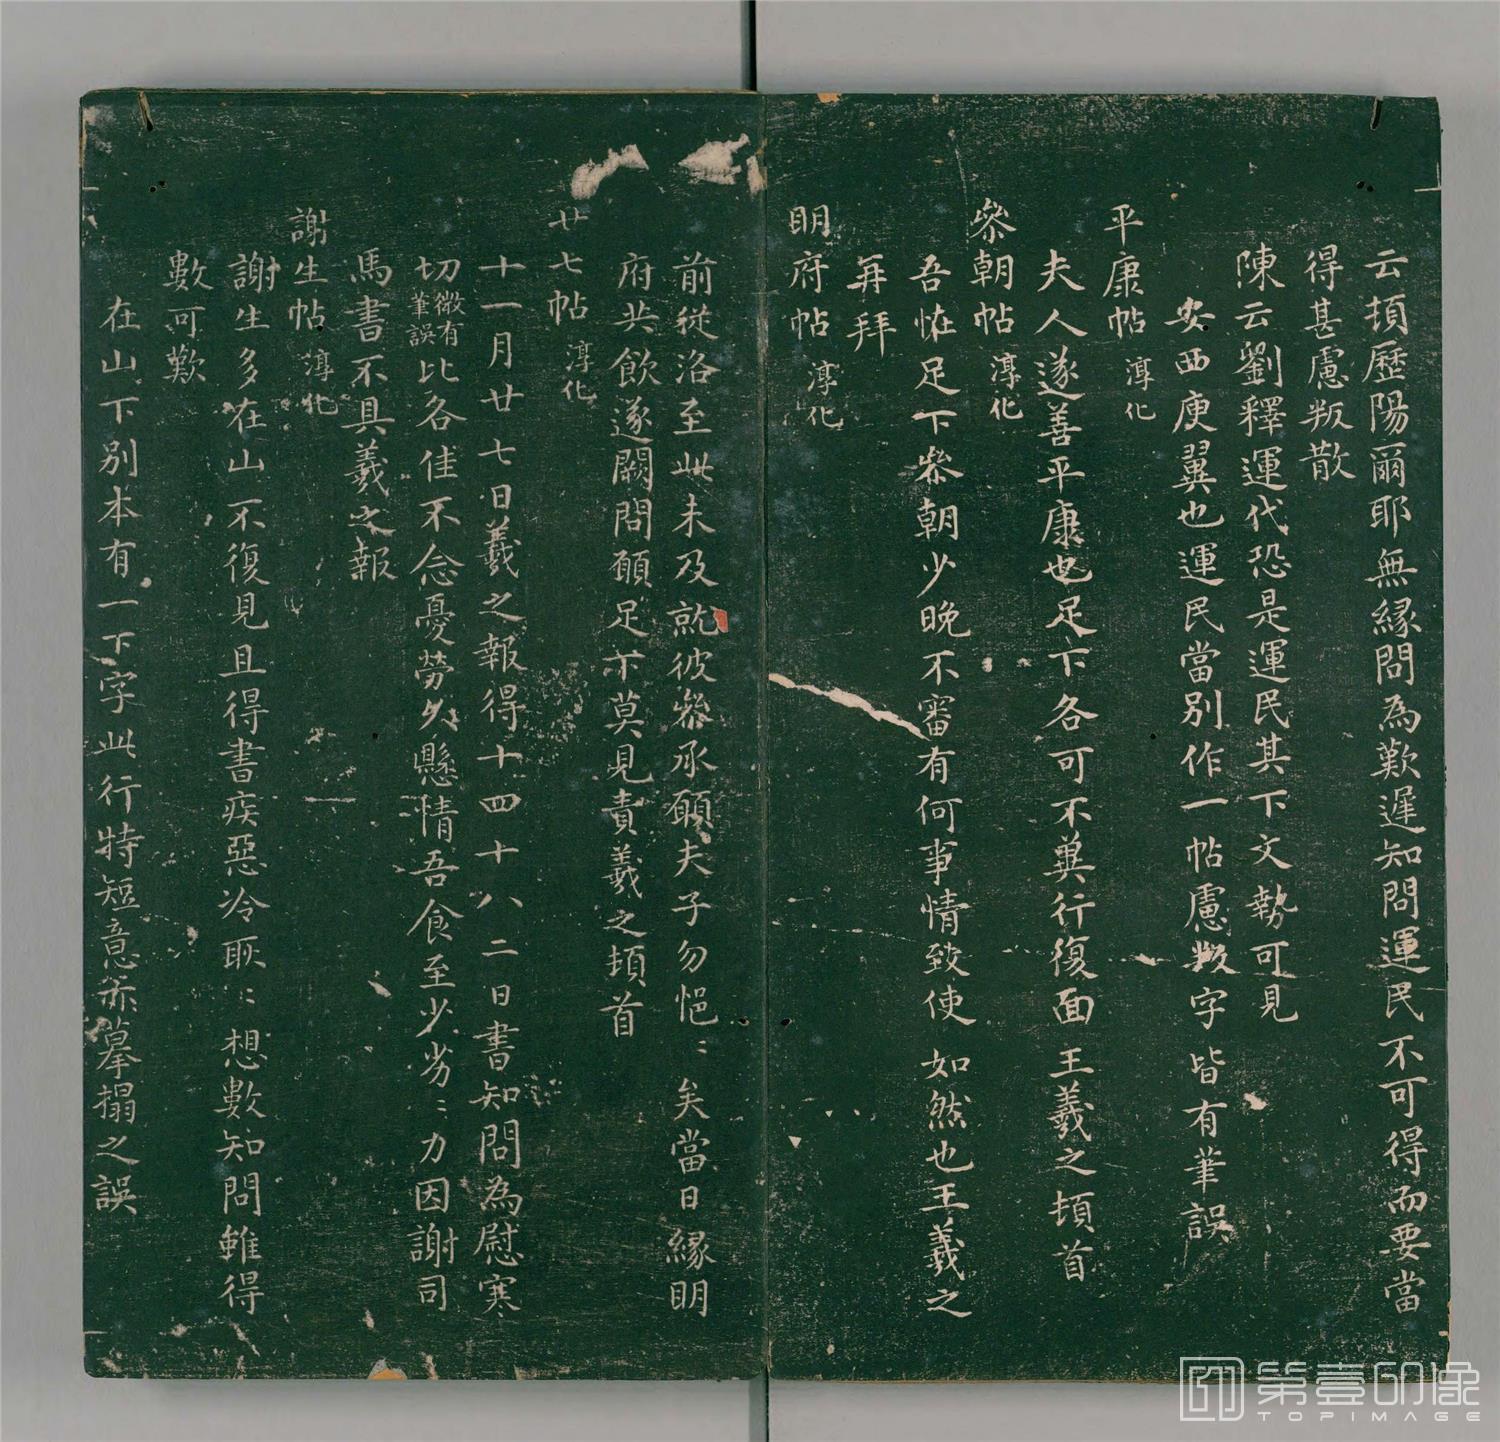 云頓歷陽爾耶無緣問為歎遲知問運民不可得而要當
得甚慮叛散
陳云劉釋運代恐是運民其下文勢可見
安西庾翼也運民當別作一帖慮叛字皆有筆誤
平康帖 淳化
夫人遂善平康也足下各可不冀行復面 王羲之頓首
叅朝帖 淳化
吾恠足下叅朝少晚不審有何事情致使 如然也王羲之
再拜
明府帖 淳化
前從洛至此未及就彼叅承願夫子勿悒〻矣當日緣明
府共飲遂闕問願足下莫見責羲之頓首
廿七帖 淳化
十一月廿七日羲之報得十四十八二日書知問為慰寒
切微有筆誤比各佳不念憂勞久懸情吾食至少劣〻力因謝司
馬書不具羲之報
謝生帖 淳化
謝生多在山不復見且得書疾惡冷耿〻想數知問雖得
數可歎
在山下別本有一下字此行特短意亦摹搨之誤
第壹印像
TOPIMAGE